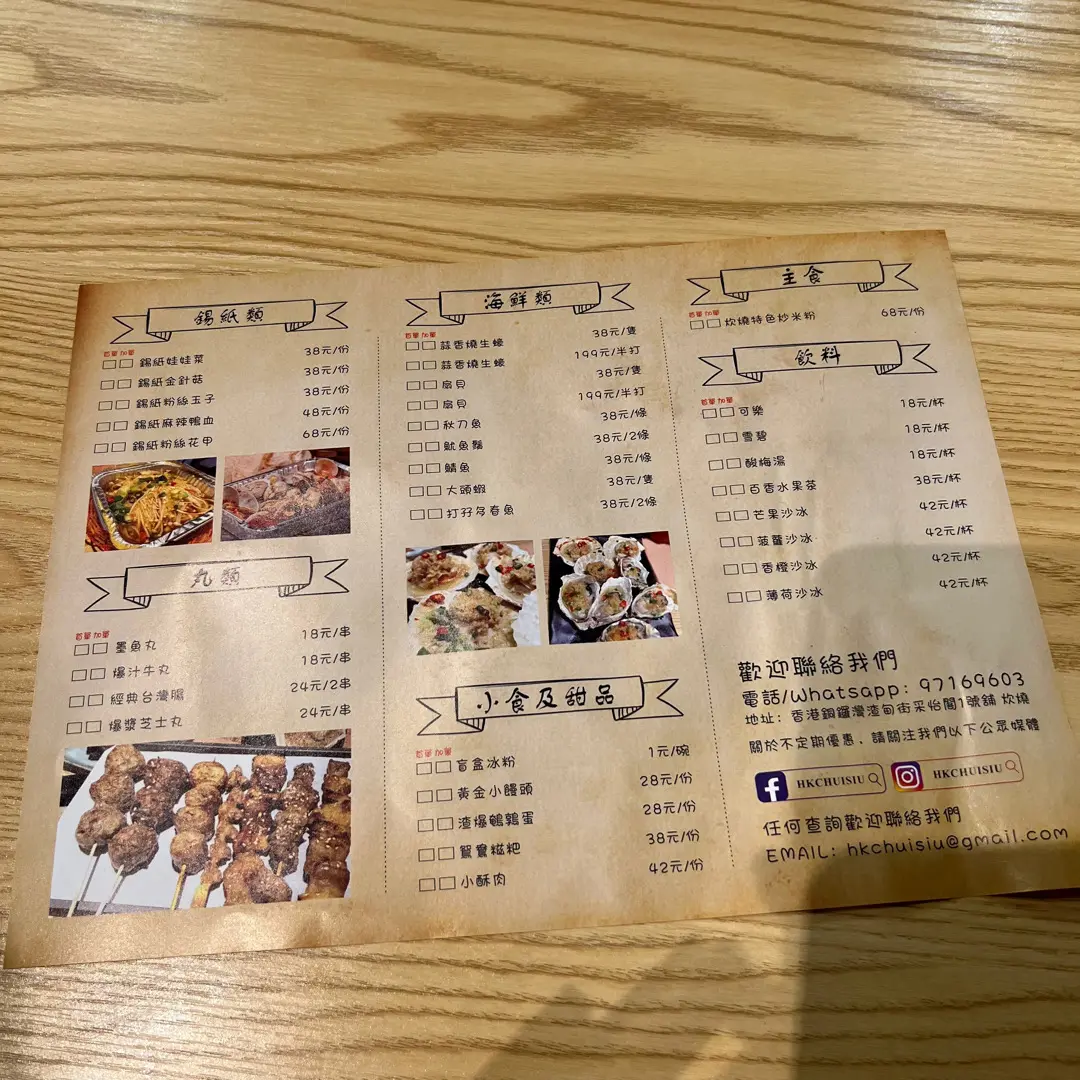 錫紙類
首單 加單
錫紙娃娃菜 38元/份
錫紙金針菇 38元/份
錫紙粉絲玉子 38元/份
錫紙麻辣鴨血 48元/份
錫紙粉絲花甲 68元/份
丸類
首單 加單
墨魚丸 18元/串
爆汁牛丸 18元/串
經典台灣腸 24元/2串
爆漿芝士丸 24元/串
海鮮類
首單 加單
蒜香燒生蠔 38元/隻
蒜香燒生蠔 199元/半打
扇貝 38元/隻
扇貝 199元/半打
秋刀魚 38元/條
魷魚鬚 38元/2條
鯖魚 38元/條
大頭蝦 38元/隻
打孖多春魚 38元/2條
小食及甜品
首單 加單
盲盒冰粉 1元/碗
黃金小饅頭 28元/份
渣爆鵪鶉蛋 28元/份
鴛鴦糍粑 38元/份
小酥肉 42元/份
主食
首單 加單
炊燒特色炒米粉 68元/份
飲料
首單 加單
可樂 18元/杯
雪碧 18元/杯
酸梅湯 18元/杯
百香水果茶 38元/杯
芒果沙冰 42元/杯
菠蘿沙冰 42元/杯
香橙沙冰 42元/杯
薄荷沙冰 42元/杯
歡迎聯絡我們
電話/Whatsapp: 97169603
地址: 香港銅鑼灣渣甸街采怡閣1號舖 炊燒
關於不定期優惠, 請關注我們以下公眾媒體
HKCHUISIU
HKCHUISIU
任何查詢歡迎聯絡我們
EMAIL: hkchuisiu@gmail.com